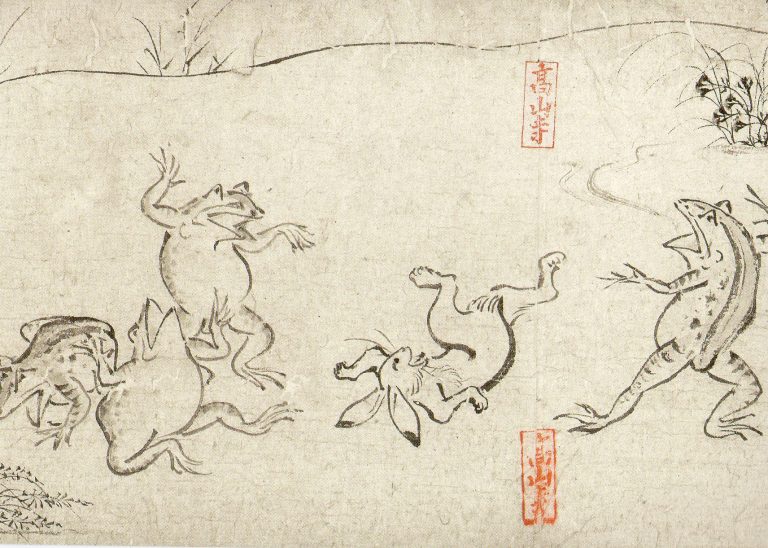 高山寺
高山寺